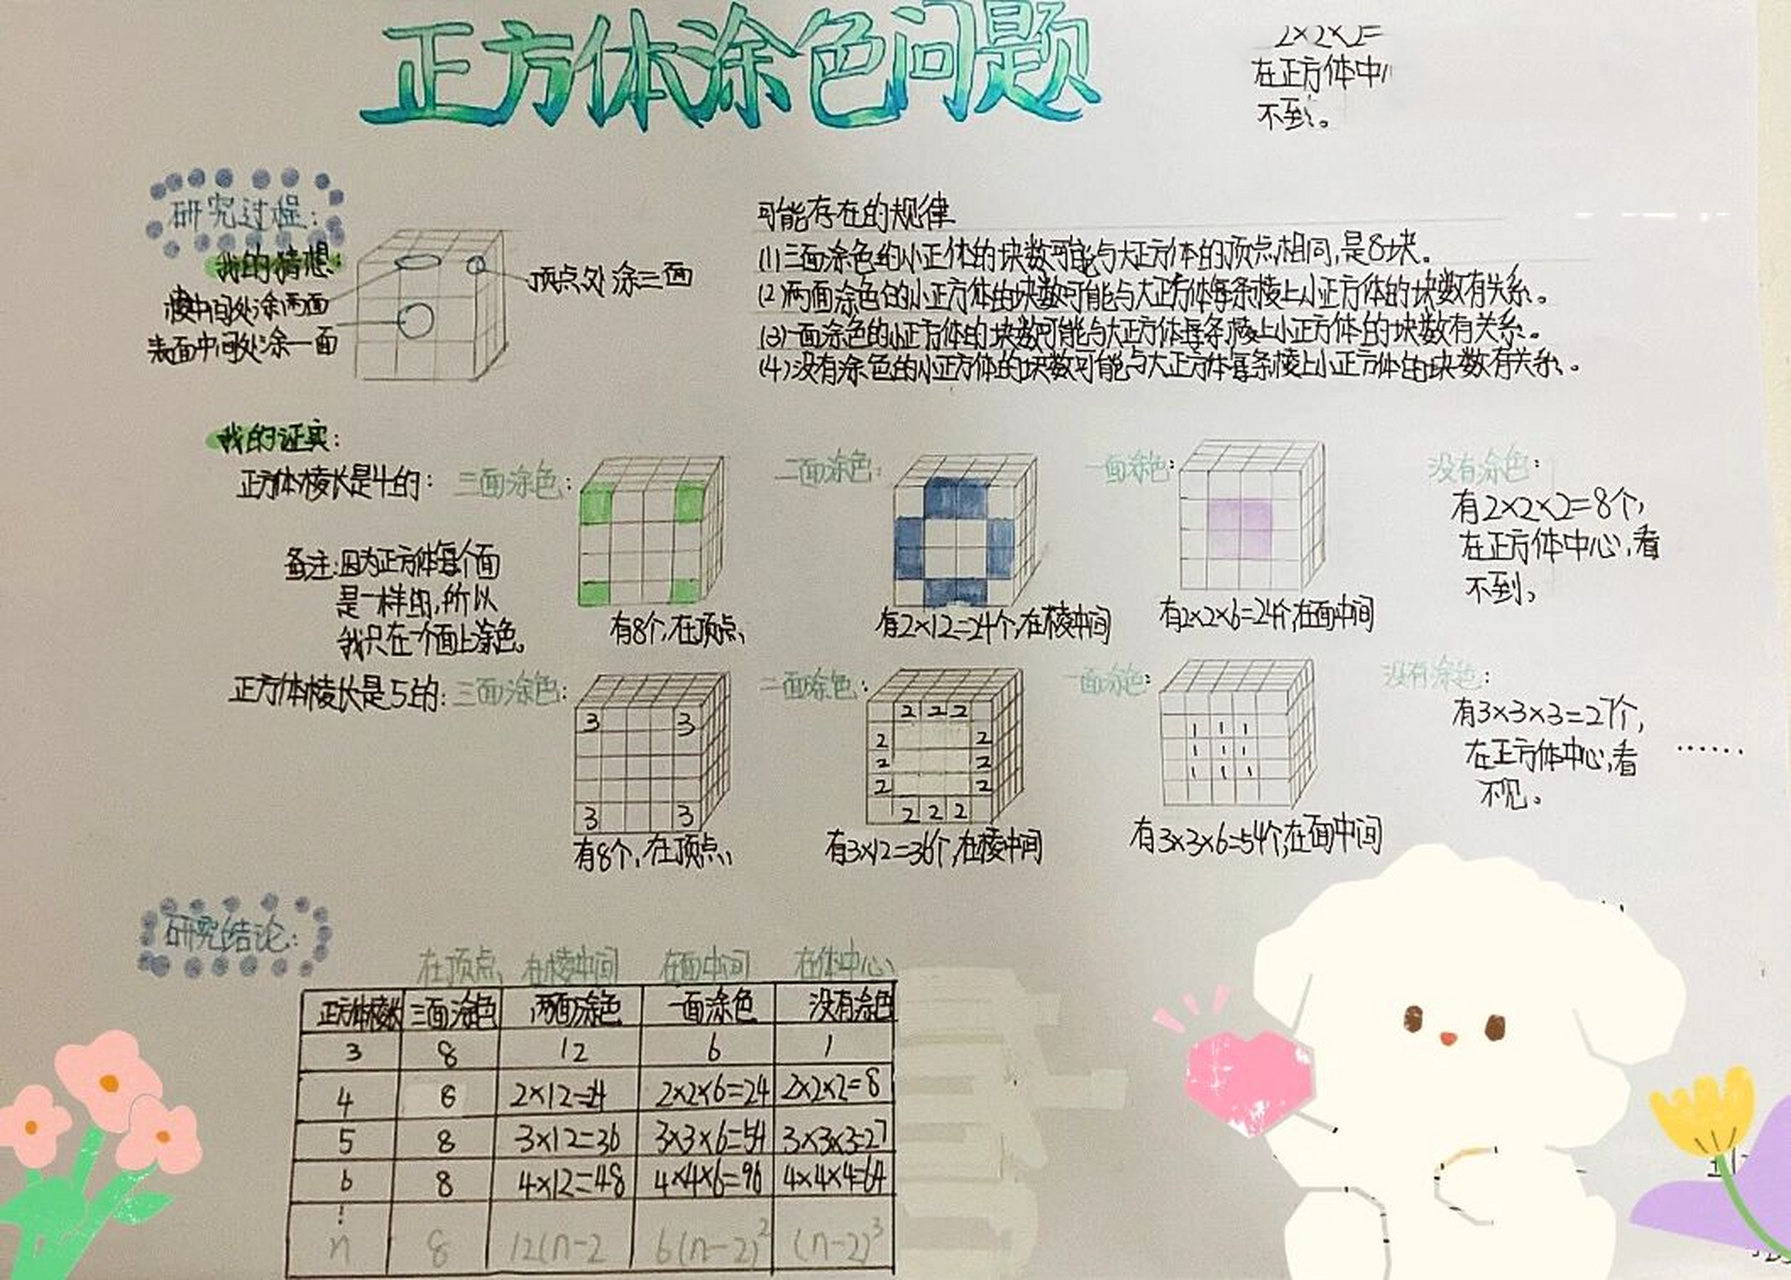 正方体涂色问题
2×2×2=
在正方体中
不到。
研究过程:
我的猜想:
棱中间处涂两面
表面中间处涂一面
顶点处涂三面
可能存在的规律
(1)三面涂色的小正体的块数可能与大正方体的顶点相同,是8块。
(2)两面涂色的小正方体的块数可能与大正方体每条棱上小正方体的块数有关系。
(3)一面涂色的小正方体的块数可能与大正方体每条棱上小正方体的块数有关系。
(4)没有涂色的小正方体的块数可能与大正方体每条棱上小正方体的块数有关系。
我的证实:
正方体棱长是4的: 三面涂色:
二面涂色:
一面涂色:
没有涂色:
有2×2×2=8个,
在正方体中心,看
不到。
备注:因为正方体每个面
是一样的,所以
我只在一个面上涂色。
有8个,在顶点
有2×12=24个,在棱中间
有2×2×6=24个,在面中间
正方体棱长是5的: 三面涂色:
3 3
3 3
有8个,在顶点
二面涂色:
2 2 2
2 2
2 2
2 2
2 2 2
有3×12=36个,在棱中间
一面涂色:
1 1 1
1 1 1
1 1 1
有3×3×6=54个,在面中间
没有涂色:
有3×3×3=27个,
在正方体中心,看
不见。
……
研究结论:
在顶点 在棱中间 在面中间 在体中心
正方体棱长 三面涂色 两面涂色 一面涂色 没有涂色
3 8 12 6 1
4 8 2×12=24 2×2×6=24 2×2×2=8
5 8 3×12=36 3×3×6=54 3×3×3=27
6 8 4×12=48 4×4×6=96 4×4×4=64
⋮
n 8 12(n-2 6(n-2)² (n-2)³